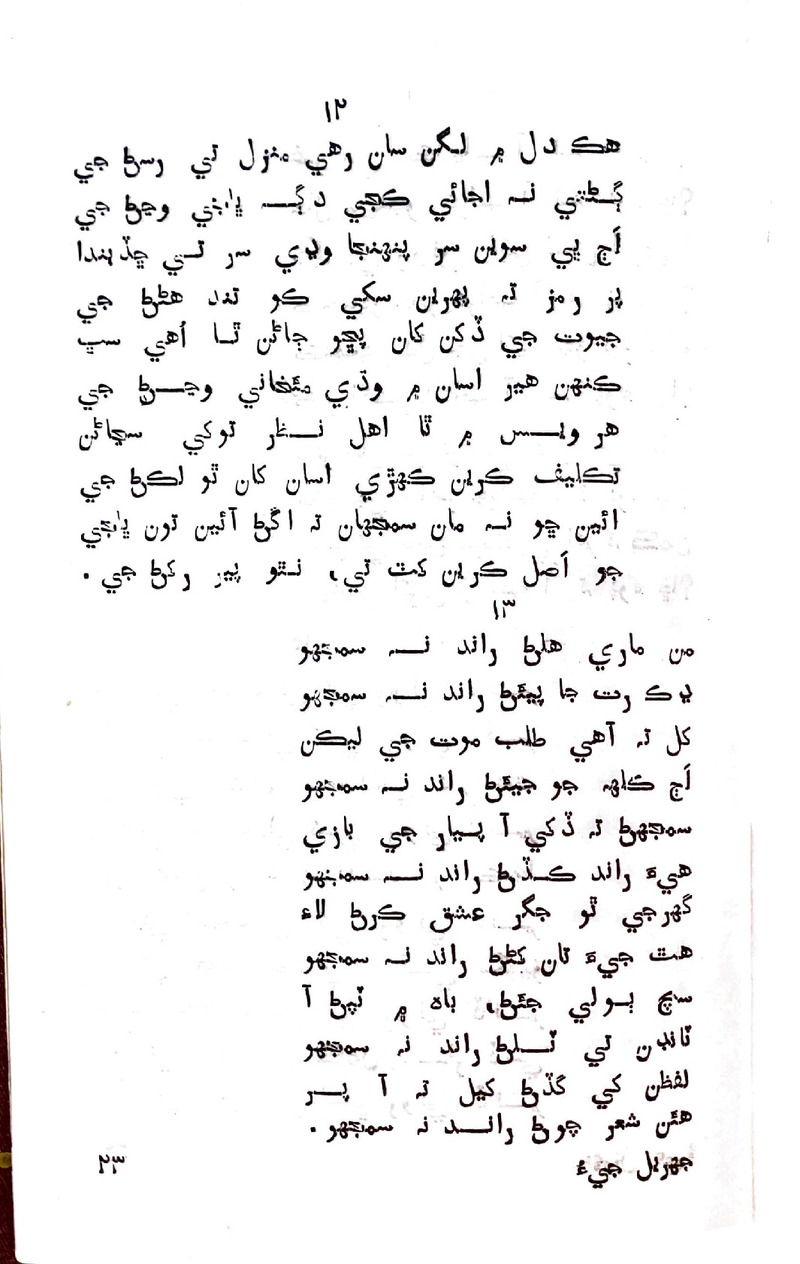 ۱۲
هڪ دل ۾ لگن سان رهي منزل تي رسڻ جي
ڳڻتي نہ اجائي ڪجي دڳ ڀانجي وڃڻ جي
اَڄ ڀي سوين سر پنهنجا وڍي سر تي ڇڏيندا
پر رمز تہ پهرين سکي ڪو تند هڻڻ جي
جيوت جي ڏکن کان پڇو ڄاڻن ٿا اُهي سڀ
ڪنهن هير اسان ۾ وڌي مئخاني وڃڻ جي
هر ويس ۾ ٿا اهل نظر توکي سڃاڻن
تڪليف ڪرين ڪهڙي اسان کان ٿو لڪڻ جي
ائين ڇو نہ مان سمجهان تہ اڱڻ آئين تون ڀانجي
جو اَصل ڪرين کٽ تي، نٿو پير رکڻ جي.
۱۳
من ماري هلڻ راند نہ سمجهو
ڍڪ رت جا پيئڻ راند نہ سمجهو
کل تہ آهي طلب موت جي ليڪن
اَڄ ڪلهہ جو جيئڻ راند نہ سمجهو
سمجهڻ تہ ڏکي آ پيار جي بازي
هيءَ راند کڏڻ راند نہ سمجهو
گهرجي ٿو جگر عشق ڪرڻ لاءِ
هٿ جيءَ تان کڻڻ راند نہ سمجهو
سچ ٻولي جئڻ، باه ۾ ٽپڻ آ
ٽانڊن تي ٽلڻ راند نہ سمجهو
لفظن کي گڏڻ کيل تہ آ پر
هئن شعر چوڻ راند نہ سمجهو.
جهريل جيءُ
۲۳